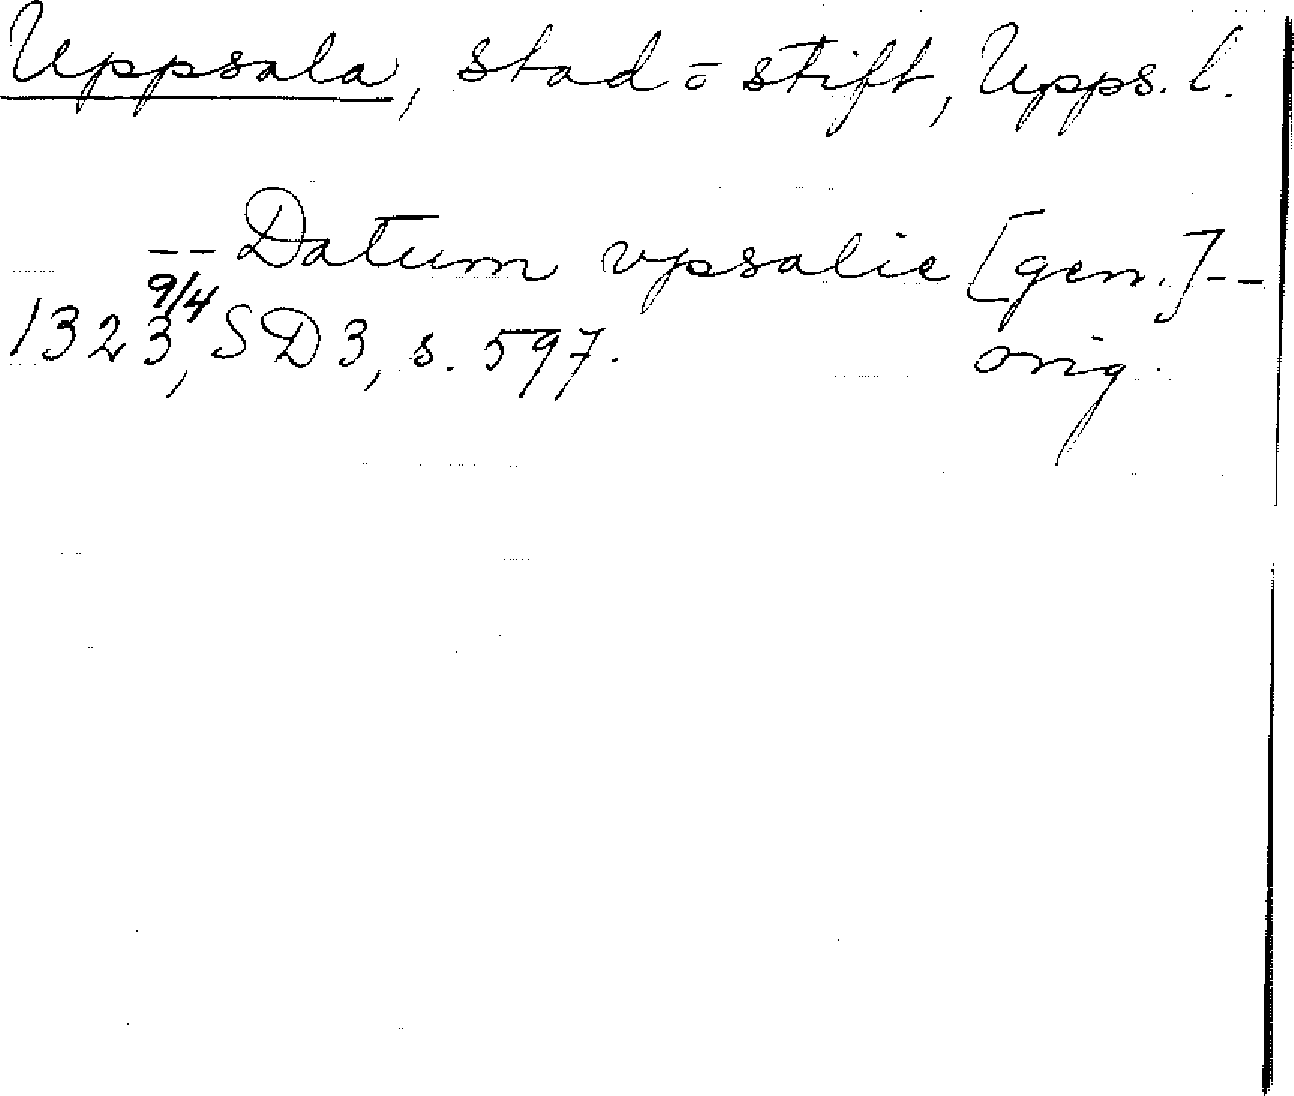 Uppsala, stad o stift, Upps. l.
-- Datum vpsalie [gen.] --
1323 9/4, SD3, s. 597. orig.